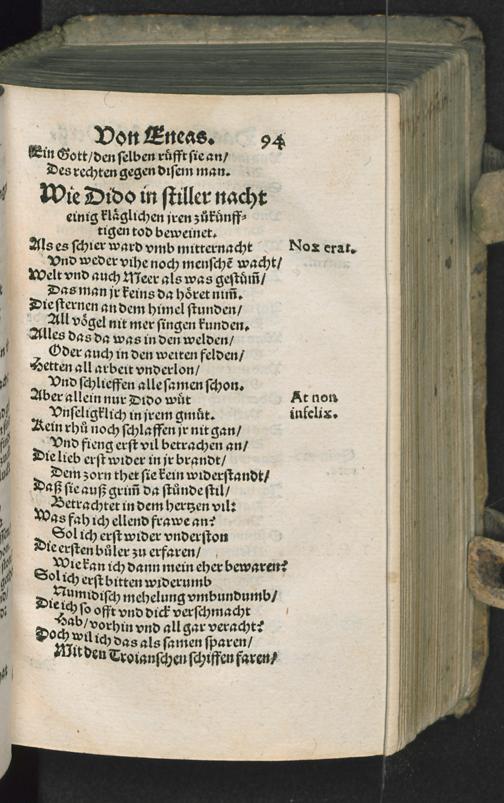 Von Eneas. 94
Ein Gott/den selben rüfft sie an/
Des rechten gegen disem man.
Wie Dido in stiller nacht
einig kläglichen jren zůkünff-
tigen tod beweinet.
Als es schier ward vmb mitternacht Nox erat.
Vnd weder vihe noch menschē wacht/
Welt vnd auch Meer als was gestüm̃/
Das man jr keins da höret nim̃.
Die sternen an dem himel stunden/
All vögel nit mer singen kunden.
Alles das da was in den welden/
Oder auch in den weiten felden/
Hetten all arbeit vnderlon/
Vnd schlieffen alle samen schon.
Aber allein nur Dido wüt At non
Vnseligklich in jrem gmüt. infelix.
Kein rhů noch schlaffen jr nit gan/
Vnd fieng erst vil betrachen an/
Die lieb erst wider in jr brandt/
Dem zorn thet sie kein widerstandt/
Daß sie auß grim̃ da stünde stil/
Betrachtet in dem hertzen vil:
Was fah ich ellend frawe an?
Sol ich erst wider vnderston
Die ersten bůler zu erfaren/
Wie kan ich dann mein eher bewaren?
Sol ich erst bitten widerumb
Numidisch mehelung vmbundumb/
Die ich so offt vnd dick verschmacht
Hab/vorhin vnd all gar veracht?
Doch wil ich das als samen sparen/
Mit den Troianschen schiffen faren/